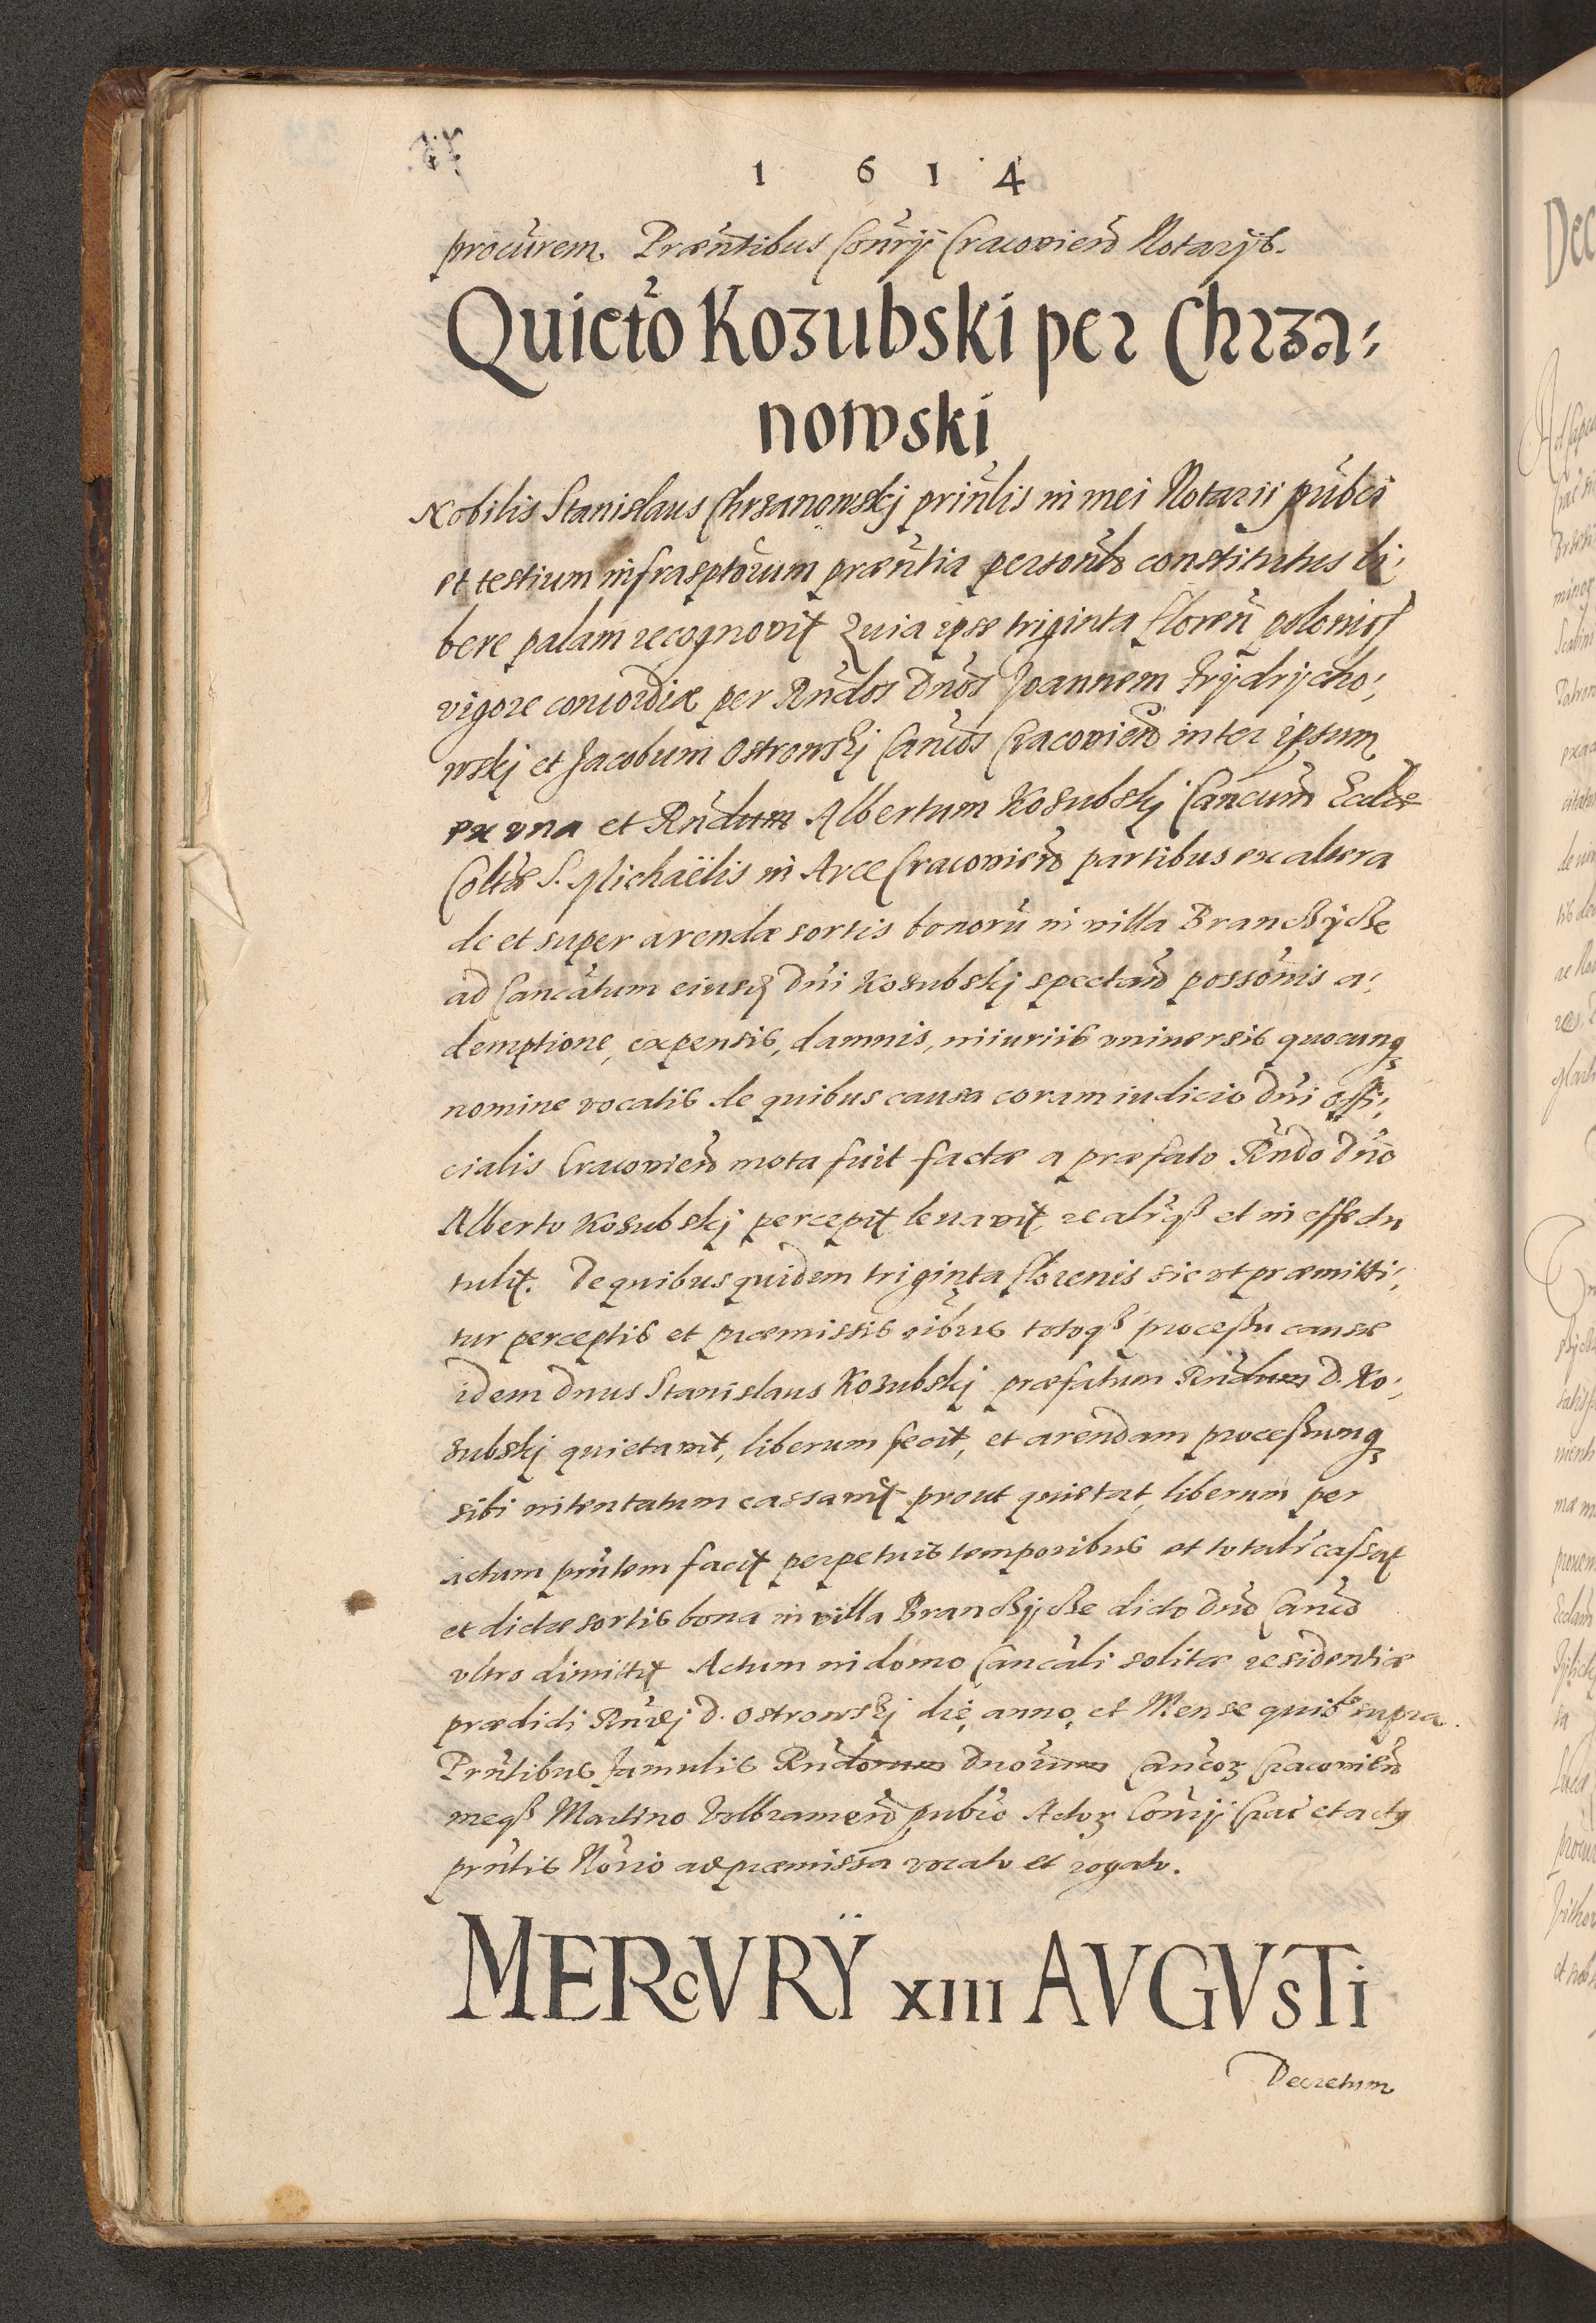 1 6 1 4
procurem. Præntibus Conrij Cracovien Notarijs.
Quietto Kozubski per Chrza:
nowski
Nobilis Stanislaus Chrzanowskj prinlis in mei Notarii publi
et testium infrasptorum præntia personlr constitutus li:
bere palam recognovit Quia ipse triginta floren polonics
vigore concordiæ per Rndos Dnos Joannem Frijdrijcho:
wskj et Jacobum Ostrowskj Cancos Cracovien inter ipsum
ex vna et Rndum Albertum Kozubskj Cancum Ecclæ
Coltæ S. Michaëlis in Arce Cracovien partibus ex altera
de et super arendæ sortis bonoru in villa Branczÿcze
ad Cancatum eiusd Dni Kozubskj spectan possonis a:
demptione, expensis, damnis, iniuriis vniuersis quocunq
nomine vocatis de quibus causa coram iudicio Dni Offi:
cialis Cracovien mota fuit factæ a præfato Rndo Dno
Alberto Kozubskj percepit leuavit realrqs et in effectu
tulit. De quibus quidem triginta florenis sic vt præmitti:
tur perceptis et præmissis oibus totoqs processu causæ
idem Dnus Stanislaus Kozubskj præfatum Rndum D. Ko:
zubskj quietavit, liberum fecit, et arendam processumq
sibi intentatum cassavit prout quietat, liberum per
actum prntem facit perpetuis temporibus et totalr cassat
et dictæ sortis bona in villa Branczÿcze dicto Dno Canco
vltro dimittit Actum in domo Cancali solitæ residentiæ
prædicti Rndj D. Ostrowskj die, anno, et Mense quibs supra.
Prntibus famulis Rndorum Dnorum Cancoz Cracovien
meqs Martino Volbramen publco Actoz Conrij Crac et actq
prntis Norio ad præmissa vocato et rogato.
MERcVRŸ XIII AVGVsTi
Decretum